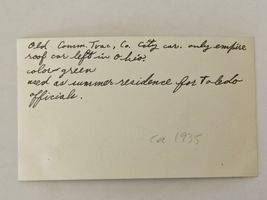 Old Comm. Trac. Co. City car. only empire
roof car left in Ohio?
color green
used as summer residence for Toledo
officials.
ca. 1935